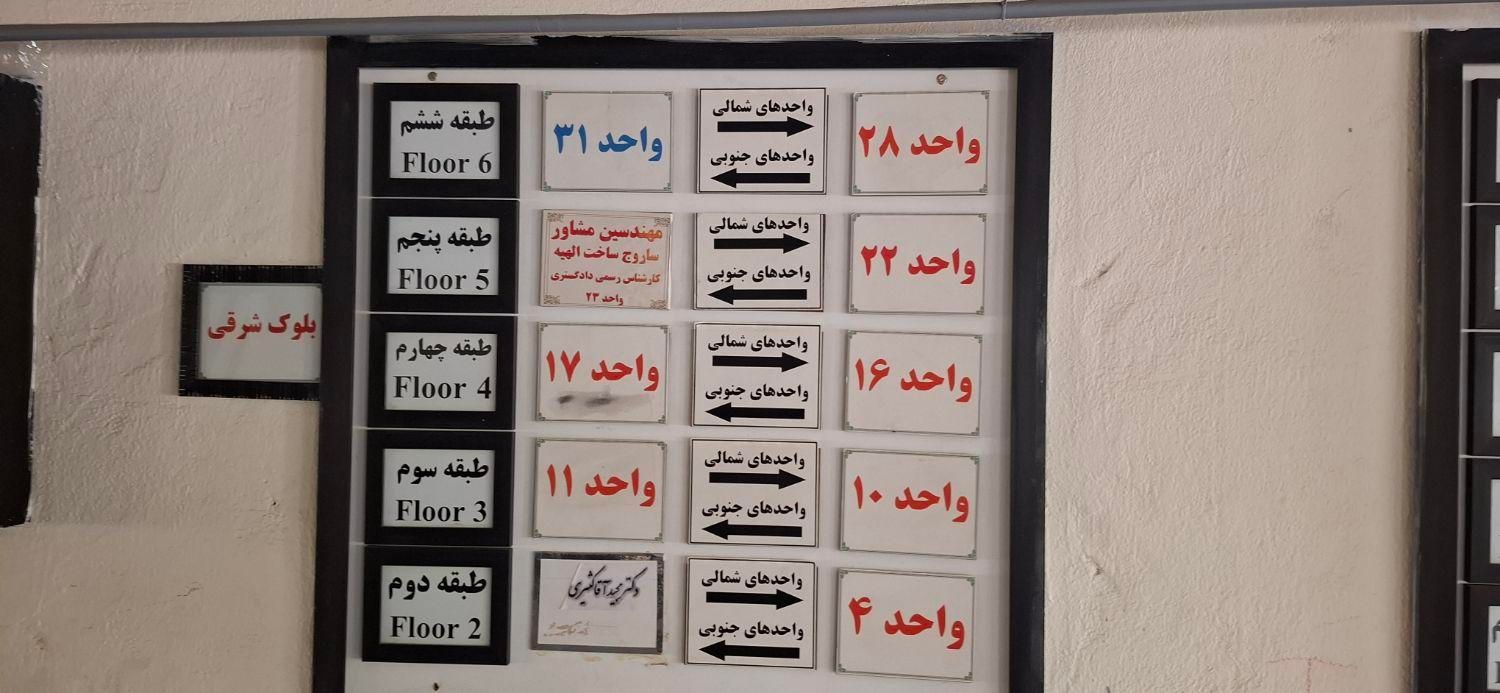 بلوک شرقی
طبقه ششم
Floor 6
واحد ۳۱
واحدهای شمالی
واحدهای جنوبی
واحد ۲۸
طبقه پنجم
Floor 5
مهندسین مشاور
ساروج ساخت الهیه
کارشناس رسمی دادگستری
واحد ۲۳
واحدهای شمالی
واحدهای جنوبی
واحد ۲۲
طبقه چهارم
Floor 4
واحد ۱۷
واحدهای شمالی
واحدهای جنوبی
واحد ۱۶
طبقه سوم
Floor 3
واحد ۱۱
واحدهای شمالی
واحدهای جنوبی
واحد ۱۰
طبقه دوم
Floor 2
دکتر مجید آقاکثیری
واحدهای شمالی
واحدهای جنوبی
واحد ۴